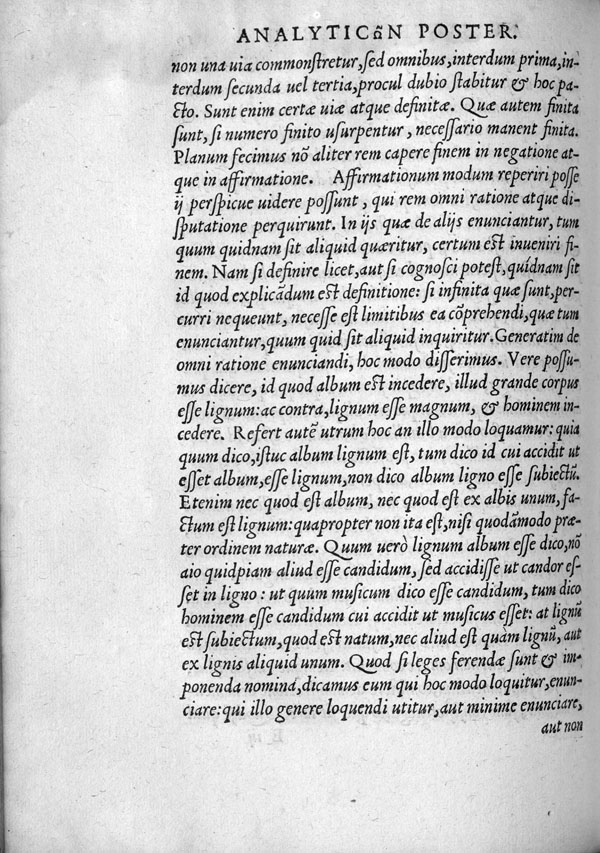 ANALYTICωN POSTER.
non una uia commonſtretur, ſed omnibus, interdum prima, in-
terdum ſecunda uel tertia, procul dubio ſtabitur & hoc pa-
cto. Sunt enim certæ uiæ atque definitæ. Quæ autem finita
ſunt, ſi numero finito uſurpentur, neceſſario manent finita.
Planum fecimus nõ aliter rem capere finem in negatione at-
que in affirmatione. Affirmationum modum reperiri poſſe
ij perſpicue uidere poſſunt, qui rem omni ratione atque di-
ſputatione perquirunt. In ijs quæ de alijs enunciantur, tum
quum quidnam ſit aliquid quæritur, certum eſt inueniri fi-
nem. Nam ſi definire licet, aut ſi cognoſci poteſt, quídnam ſit
id quod explicãdum eſt definitione: ſi infinita quæ ſunt, per-
curri nequeunt, neceſſe eſt limitibus ea cõprehendi, quæ tum
enunciantur, quum quid ſit aliquid inquiritur. Generatim de
omni ratione enunciandi, hoc modo diſſerimus. Vere poſſu-
mus dicere, id quod album eſt incedere, illud grande corpus
eſſe lignum: ac contra, lignum eſſe magnum, & hominem in-
cedere. Refert autẽ utrum hoc an illo modo loquamur: quia
quum dico, iſtuc album lignum eſt, tum dico id cui accidit ut
eſſet album, eſſe lignum, non dico album ligno eſſe ſubiectũ.
Etenim nec quod eſt album, nec quod eſt ex albis unum, fa-
ctum eſt lignum: quapropter non ita eſt, niſi quodãmodo præ-
ter ordinem naturæ. Quum uerò lignum album eſſe dico, nõ
aio quidpiam aliud eſſe candidum, ſed accidiſſe ut candor eſ-
ſet in ligno: ut quum muſicum dico eſſe candidum, tum dico
hominem eſſe candidum cui accidit ut muſicus eſſet: at lignũ
eſt ſubiectum, quod eſt natum, nec aliud eſt quam lignũ, aut
ex lignis aliquid unum. Quod ſi leges ferendæ ſunt & im-
ponenda nomina, dicamus eum qui hoc modo loquitur, enun-
ciare: qui illo genere loquendi utitur, aut minime enunciare,
aut non